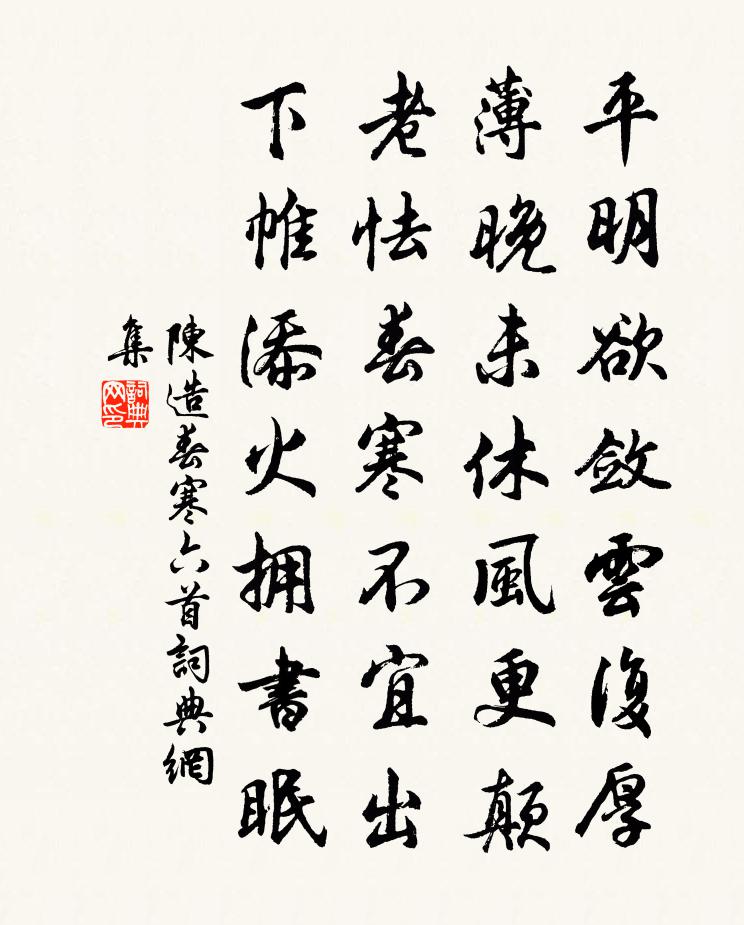 平明欲斂雲復厚
薄晚未休風更顛
老怯春寒不宜出
下帷添火拥書眠
陳造春寒六首詞典網
集
詞典網印